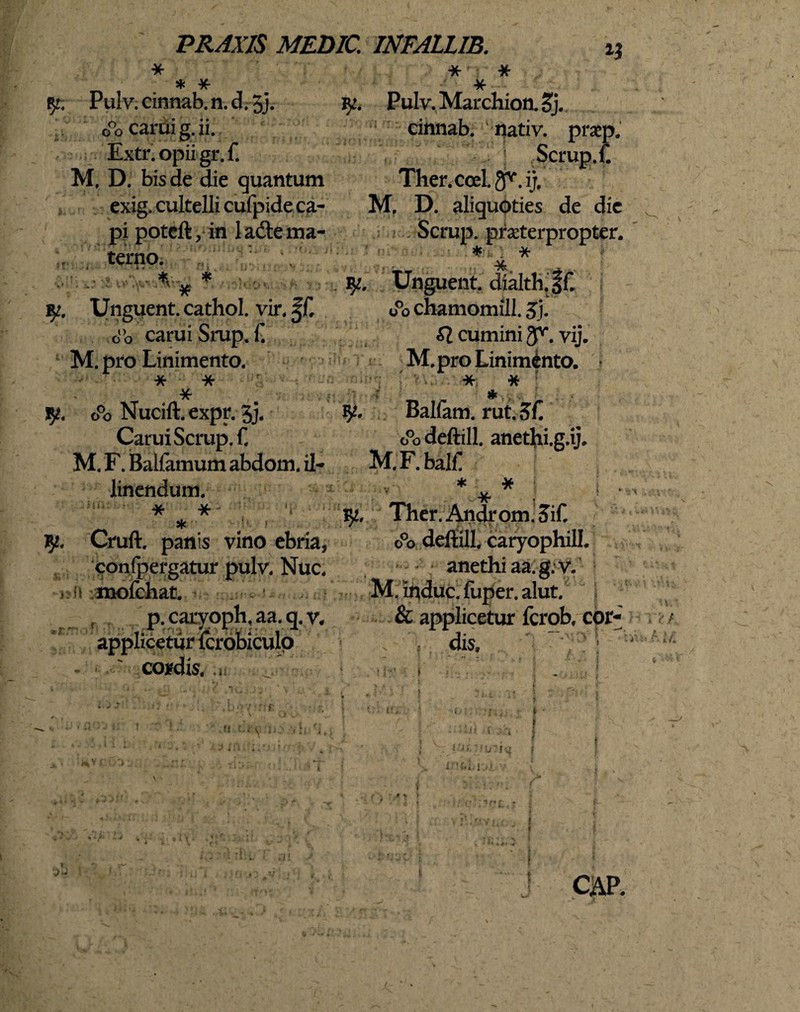 PRAXIS MEDIC. INFALLIB. 23
* * *
℞. Pulv. cinnab. n. d. ʒj.
o°o carui g. ii.
Extr. opii gr. ſ.
M. D. bis de die quantum
exig. cultelli cuſpide ca-
pi poteſt, in lacte ma-
terno.
* * *
℞. Unguent. cathol. vir. ℥ſ.
o°o carui Srup. ſ.
M. pro Linimento.
* * *
℞. o°o Nuciſt. expr. ʒj.
Carui Scrup. ſ.
M. F. Balſamum abdom. il-
linendum.
* * *
℞. Cruſt. panis vino ebria,
conſpergatur pulv. Nuc.
moſchat.
p. caryoph. aa. q. v.
applicetur ſcrobiculo
cordis.
* * *
℞. Pulv. Marchion. ʒj.
cinnab. nativ. præp.
Scrup. ſ.
Ther. cœl. gʳ. ij.
M. D. aliquoties de die
Scrup. præterpropter.
* * *
℞. Unguent. dialth. ℥ſ.
o°o chamomill. ʒj.
cumini gʳ. vij.
M. pro Linimento.
* * *
℞. Balſam. rut. ʒſ.
o°o deſtill. anethi. g. ij.
M. F. balſ.
* * *
℞. Ther. Androm. ʒiſ.
o°o deſtill. caryophill.
anethi aa. g. v.
M. induc. ſuper. alut.
& applicetur ſcrob. cor-
dis.
CAP.